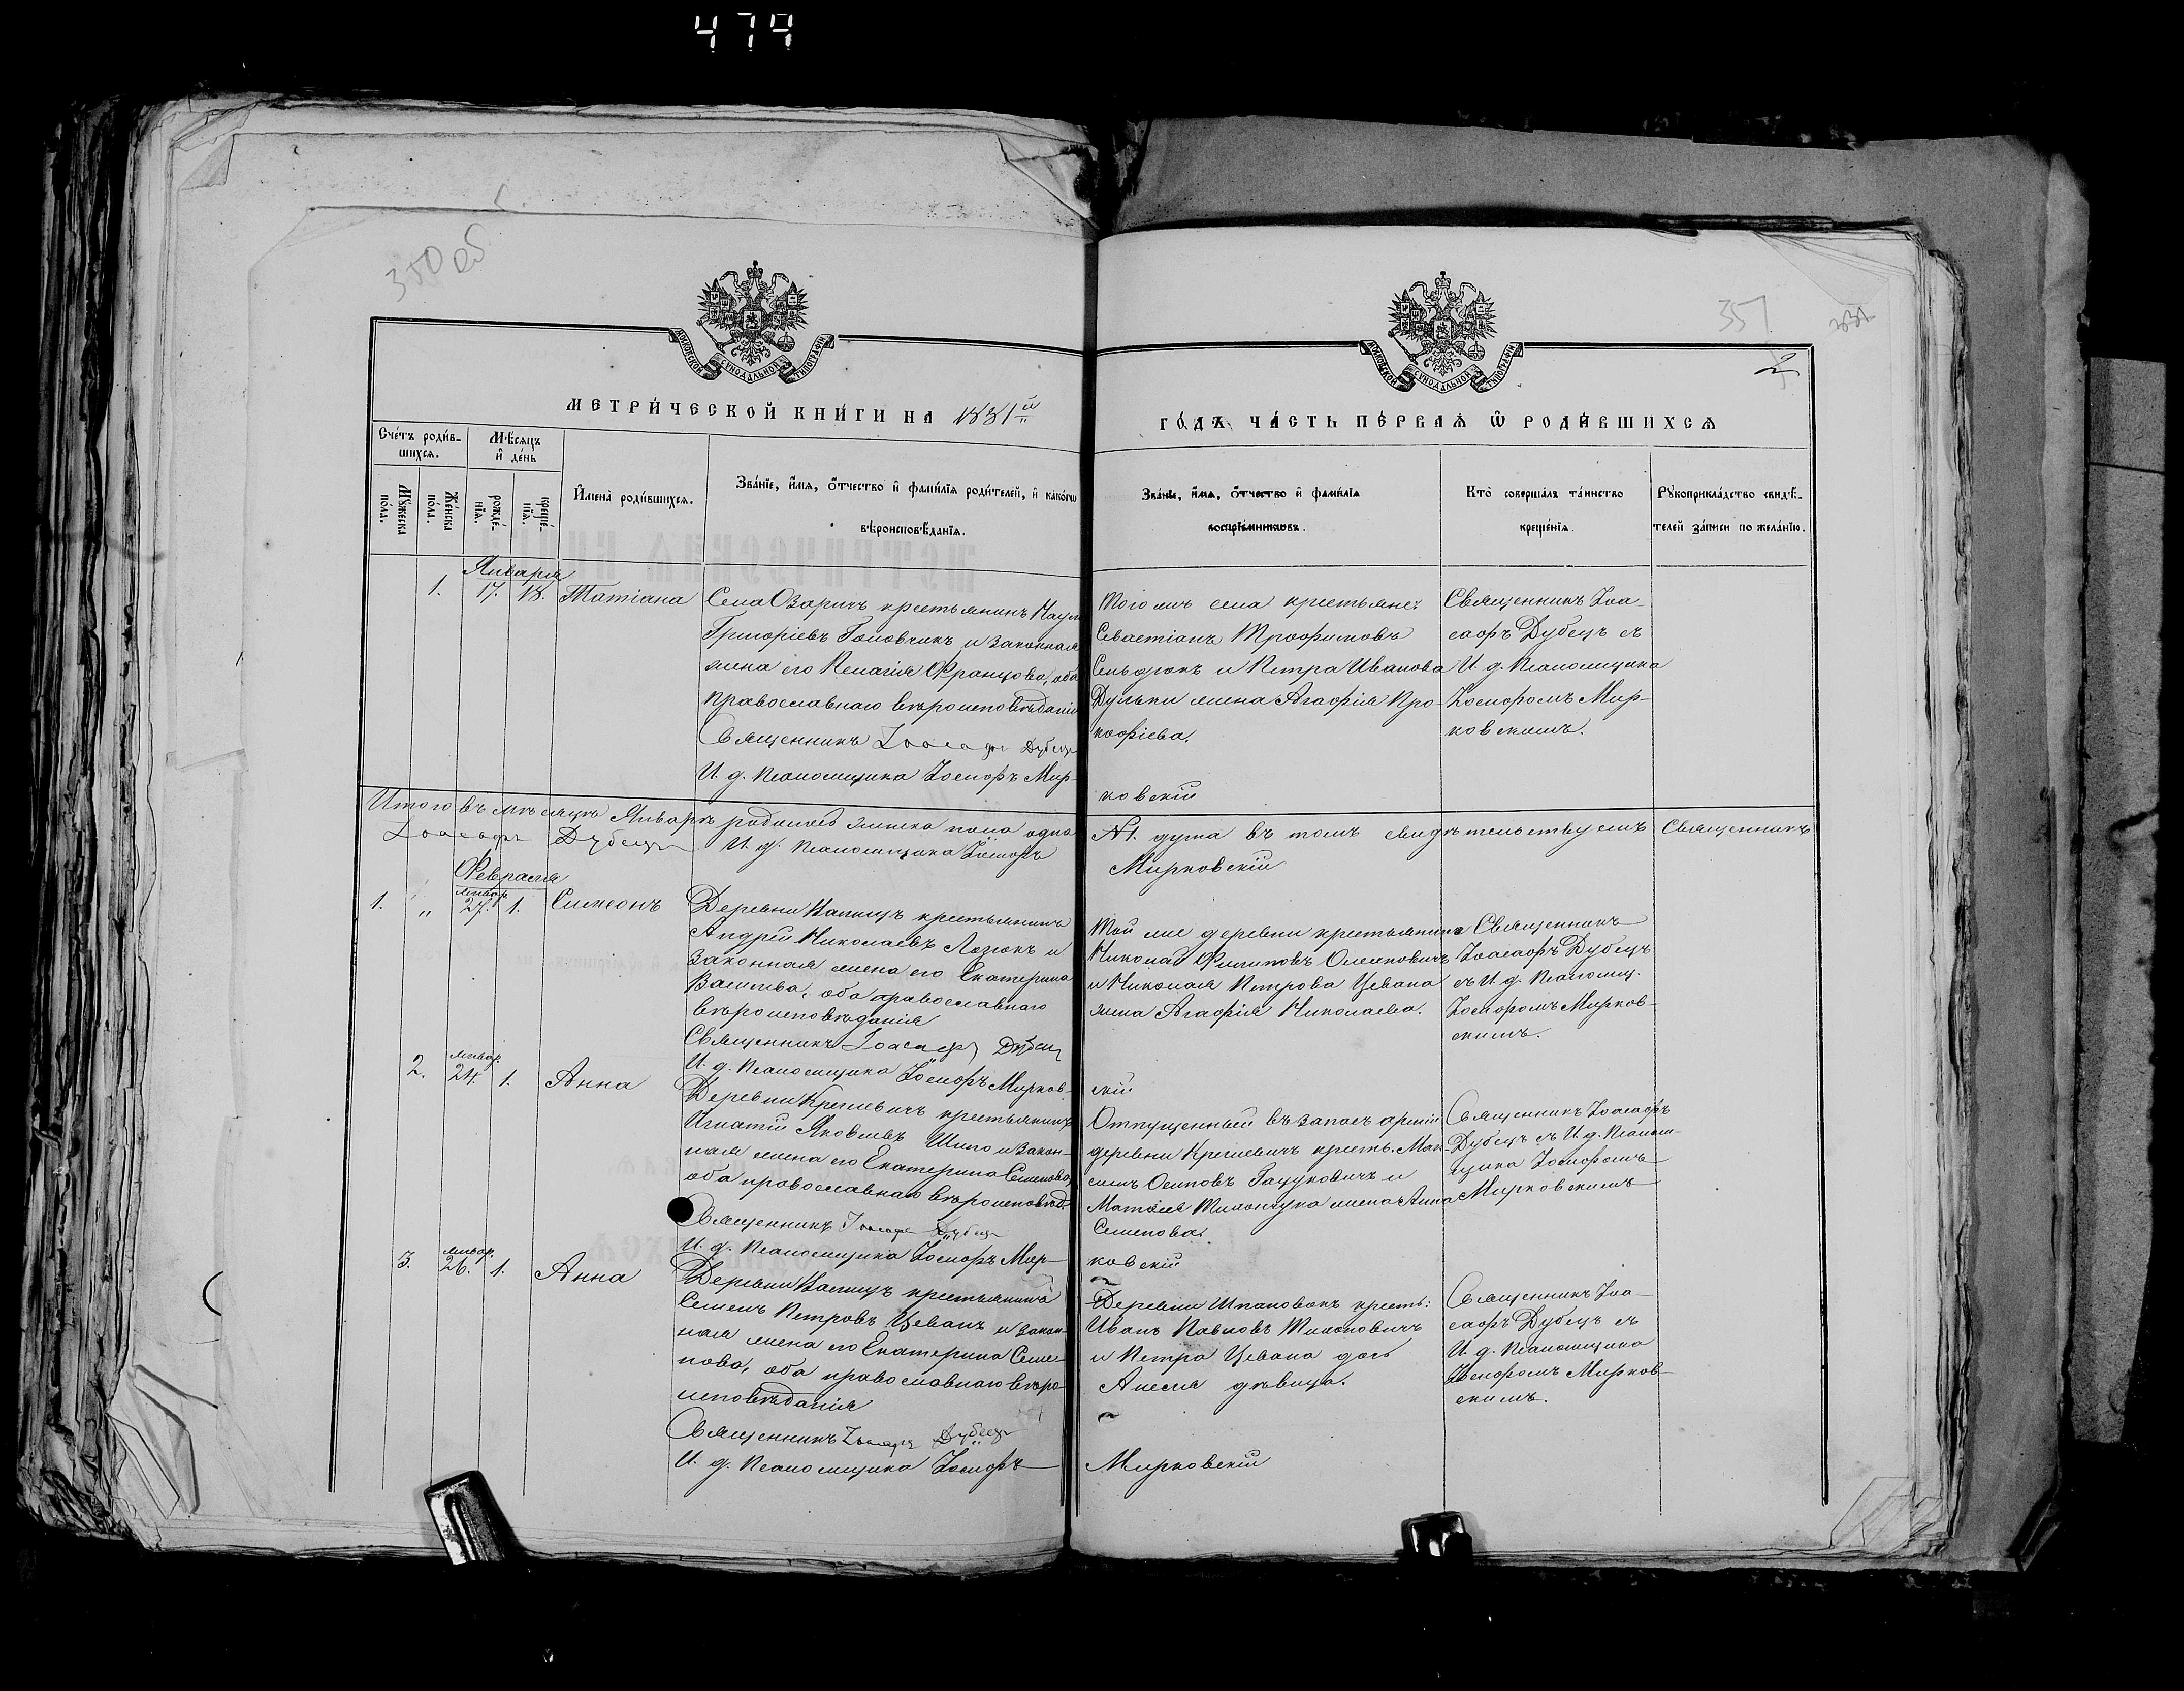 474
350 об
351
331
2
МОСКОВСКОЙ СѴНОДАЛЬНОЙ ТИПОГРАФІИ
МОСКОВСКОЙ СѴНОДАЛЬНОЙ ТИПОГРАФІИ
МЕТРИ́ЧЕСКОЙ КНИ́ГИ НА 1881й
ГО́ДЪ ЧА́СТЬ ПЕ́РВАѦ Ѿ РОДИ́ВШИХСѦ
Сче́тъ роди́в-
шихсѧ.
Мѣ́сѧцъ
и҆ де́нь
Мꙋ́жеска
по́ла.
Же́нска
по́ла.
рожде́-
нїѧ.
креще́-
нїѧ.
И҆мена̀ роди́вшихсѧ.
Зва́нїе, и҆́мѧ, ѻ҆́тчество и҆ фами́лїѧ роди́телей, и҆ како́гѡ
вѣроисповѣ́данїѧ.
Зва́нїе, и҆́мѧ, ѻ҆́тчество и҆ фами́лїѧ
воспрїе́мниковъ.
Кто̀ соверша́лъ та́инство
креще́нїѧ.
Рꙋкоприкла́дство свидѣ́-
телей за́писи по жела́нїю.
Января
1. 17. 18. Татіана
Села Озаричъ крестьянинъ Наумъ
Григоріевъ Головчикъ и законная
жена его Пелагія Францова, оба
православнаго вѣроисповѣданія
Священникъ Іоасафъ Дубецъ
И. д. псаломщика Іосифъ Мир-
ковскій
Того жъ села крестьяне:
Севастіанъ Трофимовъ
и Петра Иванова
жена Агафія Про-
кофіева.
Священникъ Іоа-
сафъ Дубецъ съ
И. д. псаломщика
Іосифомъ Мир-
ковскимъ.
Итого въ мѣсяцѣ Январѣ родилось женска пола одна № 1. душа въ томъ свидѣтельствуемъ Священникъ
Іоасафъ Дубецъ И. д. псаломщика Іосифъ Мирковскій
Февраля
1. „ январ. 27. 1. Симеонъ
Деревни крестьянинъ
Андрей Николаевъ Лозюкъ и
законная жена его Екатерина
Васильева, оба православнаго
вѣроисповѣданія
Священникъ Іоасафъ Дубецъ
И. д. псаломщика Іосифъ Мирков-
скій
Той же деревни крестьянинъ
Николай Филиповъ
и Николая Петрова Цевана
жена Агафія Николаева.
Священникъ
Іоасафъ Дубецъ
съ И. д. псаломщ.
Іосифомъ Мирков-
скимъ.
2. январ. 24. 1. Анна
Деревни Кремевичъ крестьянинъ
Игнатій Яковлевъ Шило и закон-
ная жена его Екатерина Семенова,
оба православнаго вѣроисповѣд.
Священникъ Іоасафъ Дубецъ
И. д. псаломщика Іосифъ Мир-
ковскій
Отпущенный въ запасъ арміи
деревни Кремевичъ крест. Мак-
симъ Осиповъ Гацуковичъ и
жена Анна
Семенова.
Священникъ Іоасафъ
Дубецъ съ И. д. псалом-
щика Іосифомъ
Мирковскимъ
3. январ. 26. 1. Анна
Деревни крестьянинъ
Семенъ Петровъ Цеванъ и закон-
ная жена его Екатерина Семе-
нова, оба православнаго вѣро-
исповѣданія
Священникъ Іоасафъ Дубецъ
И. д. псаломщика Іосифъ
Мирковскій
Деревни крест:
Иванъ Павловъ
и Петра Цевана дочь
Анеля дѣвица.
Священникъ Іоа-
сафъ Дубецъ съ
И. д. псаломщика
Іосифомъ Мирков-
скимъ.